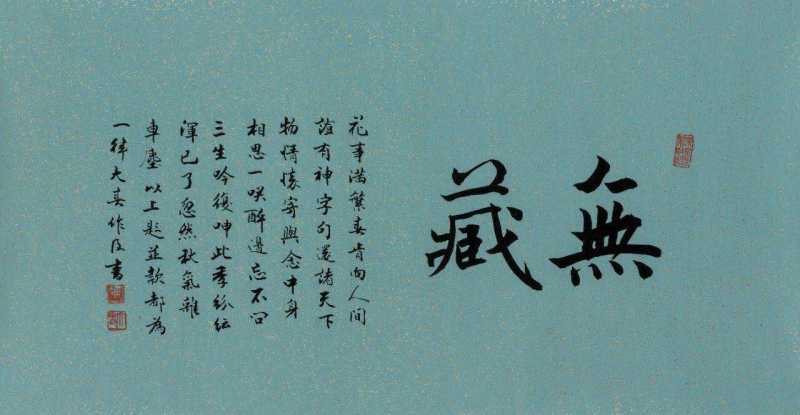 無藏
花事滿蘩春肯向人間
誼有神字句還諸天下
物情懷寄與念中身
相思一笑醉邊忘不問
三生吟復呻此季紛紜
渾已了忽然秋氣雜
車塵以上題並款都為
一律大春作及書